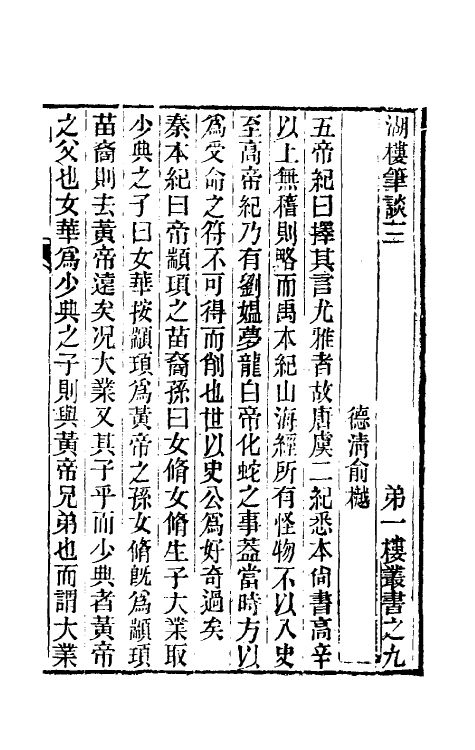 湖樓筆談三　第一樓叢書之九
德清俞樾
五帝紀曰擇其言尤雅者故唐虞二紀悉本尙書高辛
以上無稽則略而禹本紀山海經所有怪物不以入史
至高帝紀乃有劉媼夢龍白帝化蛇之事葢當時方以
爲受命之符不可得而削也世以史公爲好奇過矣
秦本紀曰帝顓頊之苗裔孫曰女脩女脩生子大業取
少典之子曰女華按顓頊爲黃帝之孫女脩旣爲顓頊
苗裔則去黃帝遠矣況大業又其子乎而少典者黃帝
之父也女華爲少典之子則與黃帝兄弟也而謂大業